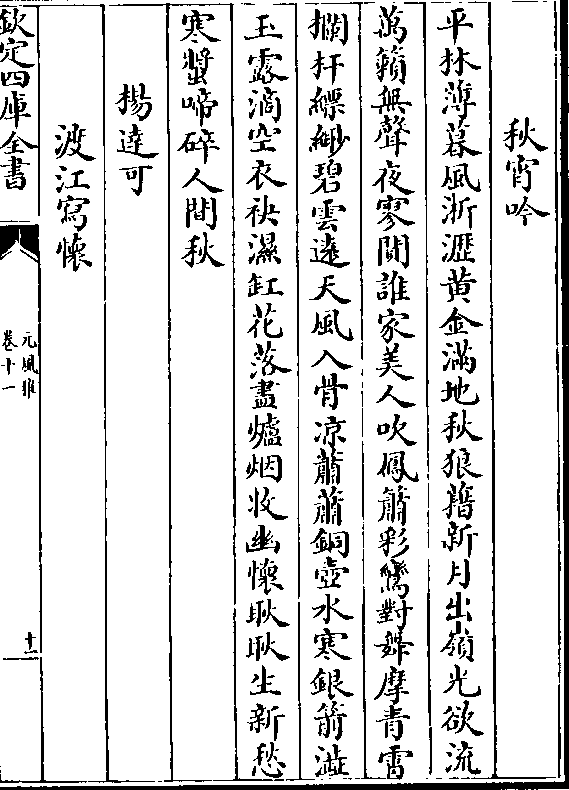 秋宵吟
平林薄暮風淅瀝黄金滿地秋狼藉新月出嶺光欲流
萬籟無聲夜寥閴誰家美人吹鳳簫彩鸞對舞摩青霄
欄杆縹緲碧雲遠天風入骨凉蕭蕭銅壺水寒銀箭澁
玉露滴空衣袂濕缸花落盡爐烟收幽懷耿耿生新愁
寒螿啼碎人間秋
楊達可
渡江寫懷
欽定四庫全書
元風雅
卷十一
十一